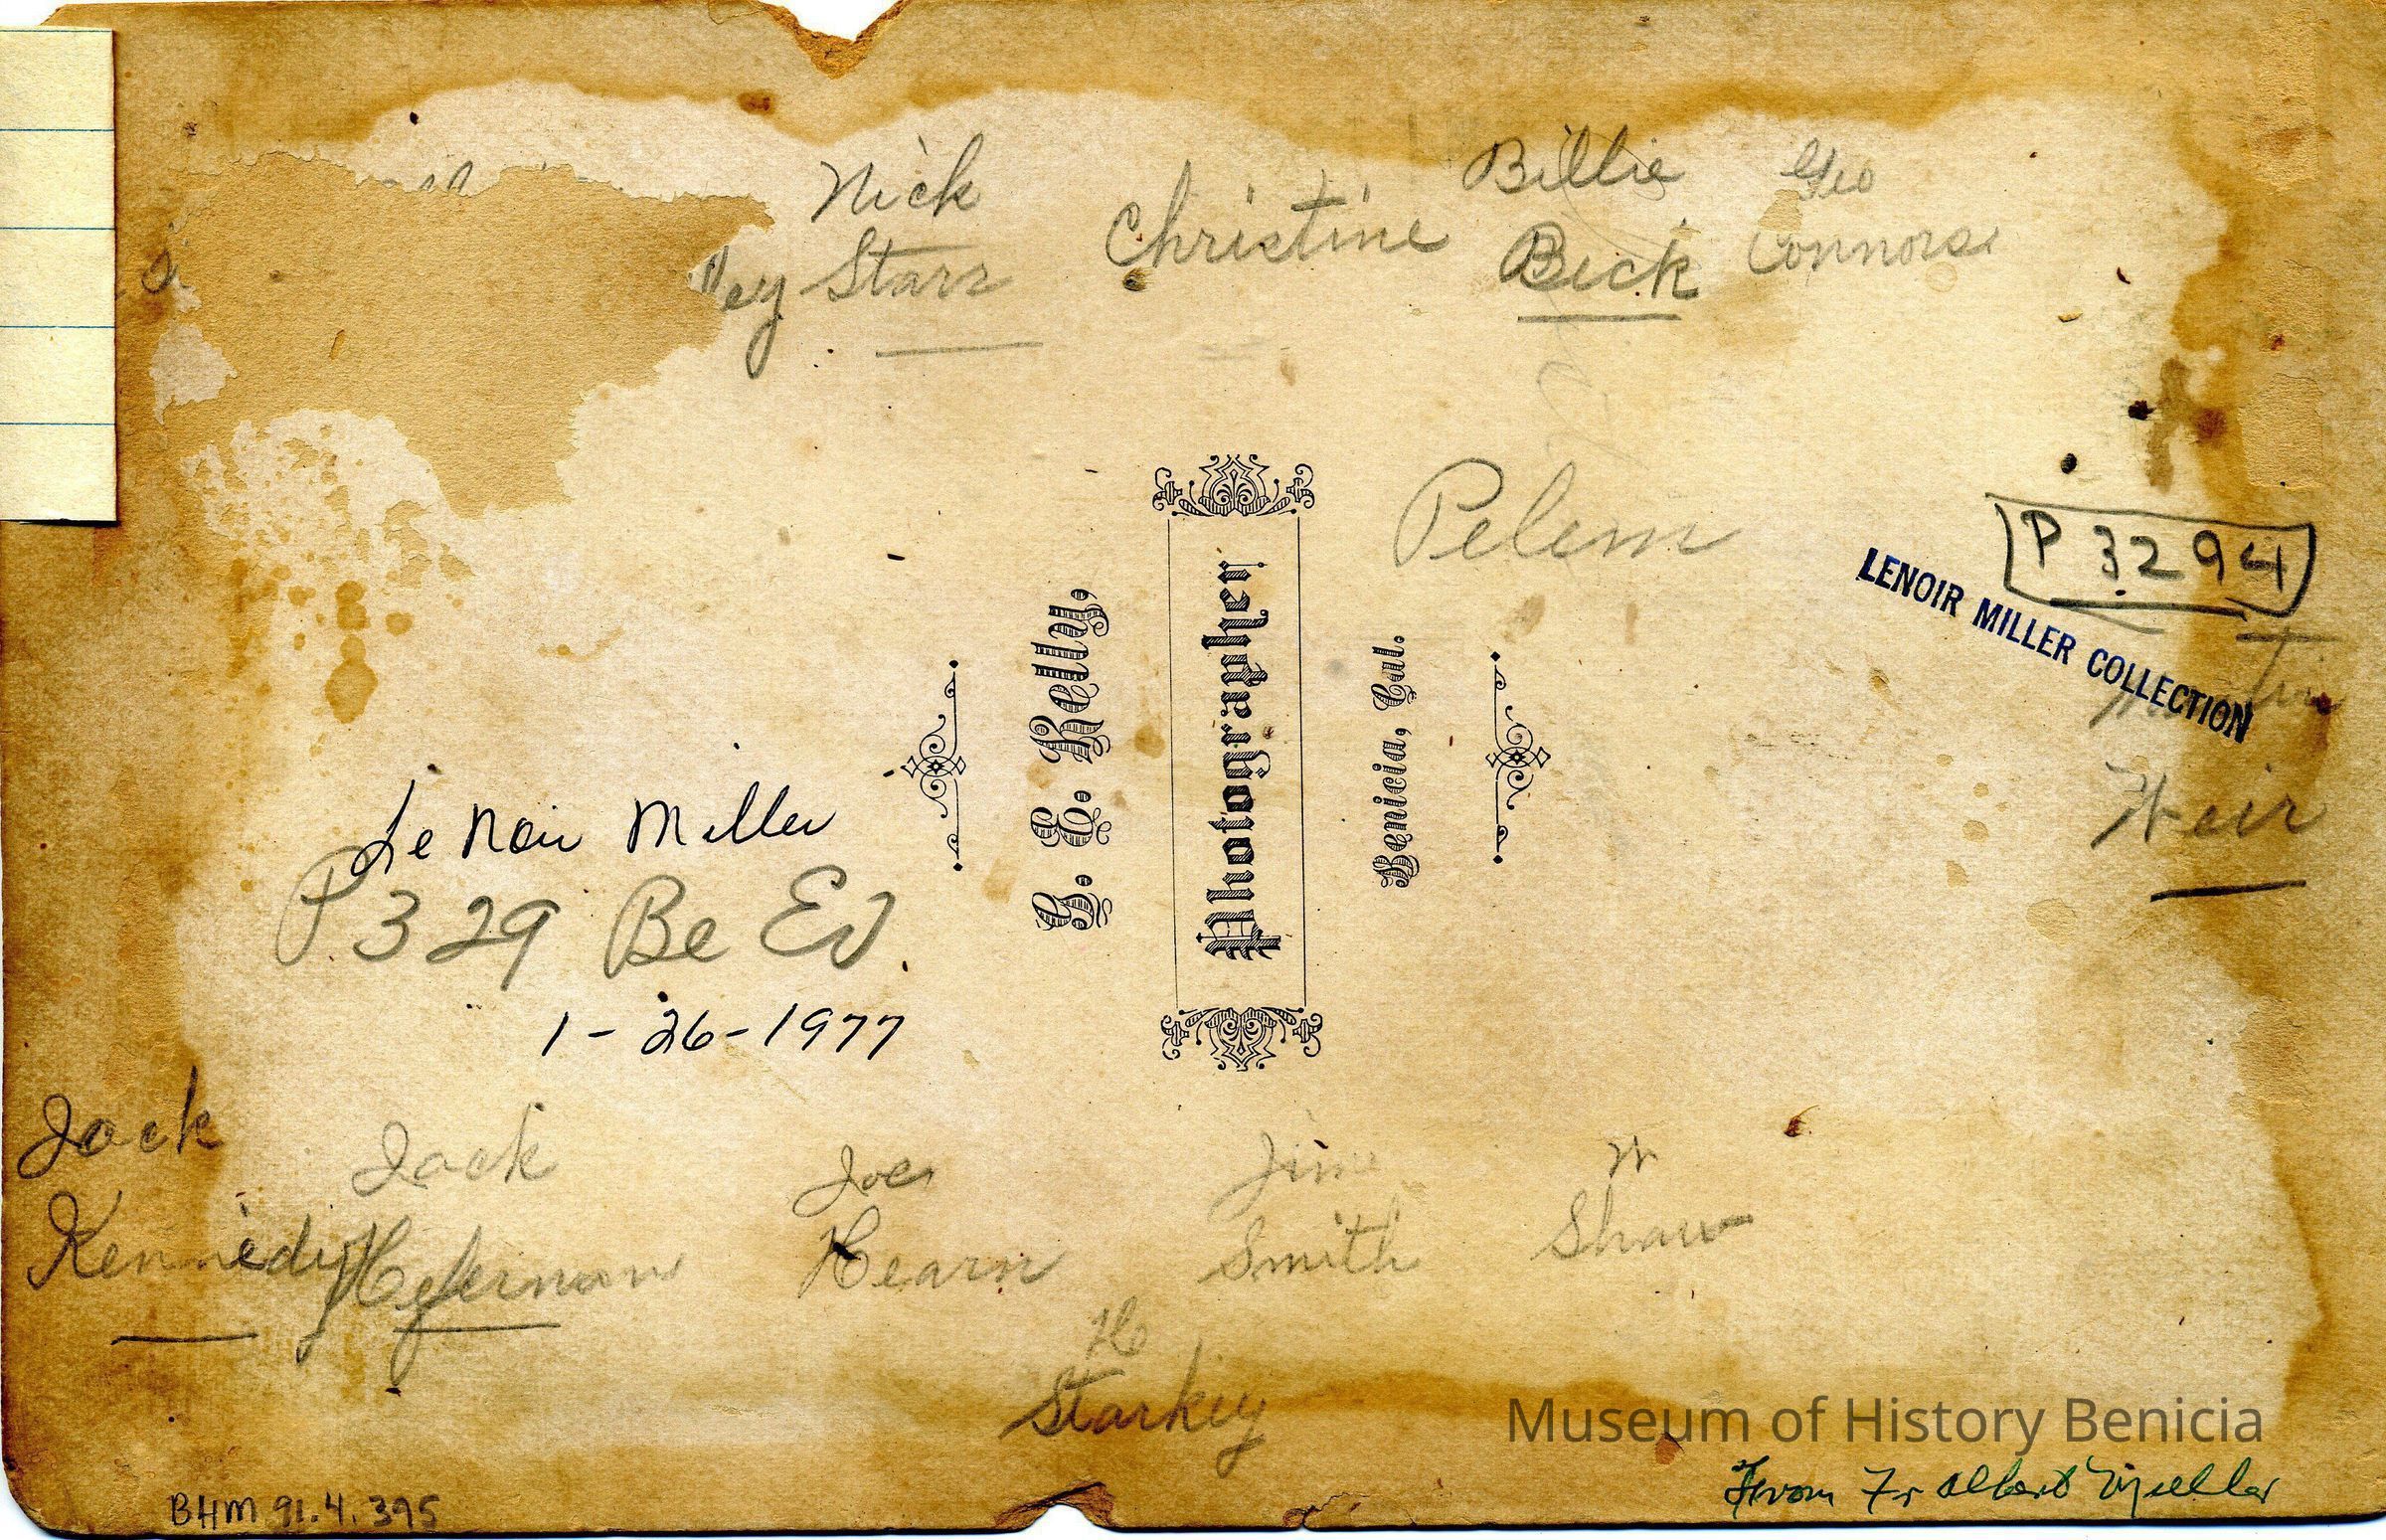 Nick
ey Starr
Christine
Billie
Beck
Geo
Connors
Pelem
P 3294
LENOIR MILLER COLLECTION
Weir
G. E. Kelly,
Photographer
Benicia, Cal.
LeNoir Miller
P 329 Be Ev
1-26-1977
Jack
Kennedy
Jack
Hefernan
Joe
Hearn
Jim
Smith
W
Shaw
H
Starkey
Museum of History Benicia
From Fr Albert Mueller
BHM 91.4.395